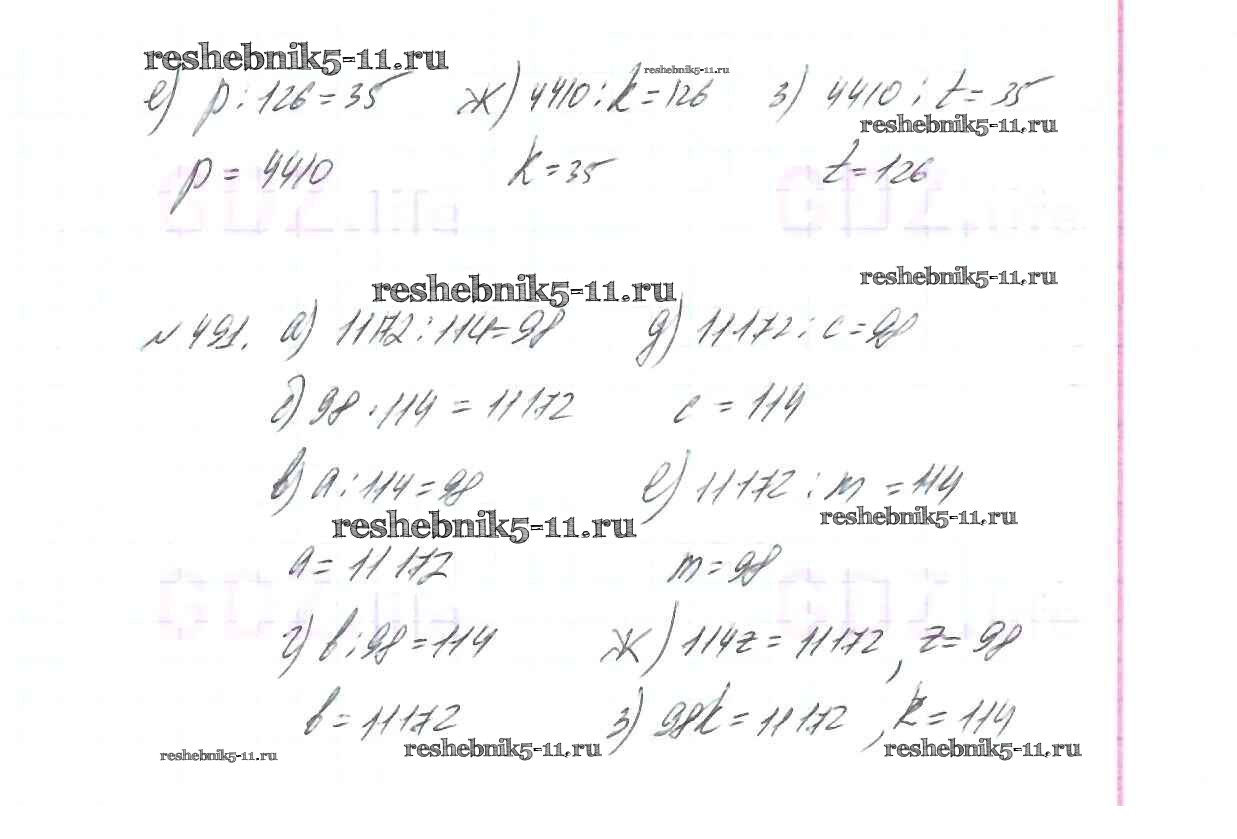 reshebnik5-11.ru
е) p : 126 = 35 ж) 4410 : k = 126 з) 4410 : t = 35
reshebnik5-11.ru
reshebnik5-11.ru
p = 4410 k = 35 t = 126
GDZ.life GDZ.life
reshebnik5-11.ru
reshebnik5-11.ru
№ 491. а) 11172 : 114 = 98 д) 11172 : c = 98
б) 98 · 114 = 11172 c = 114
в) a : 114 = 98 е) 11172 : m = 114
reshebnik5-11.ru
reshebnik5-11.ru
a = 11172 m = 98
GDZ.life GDZ.life
г) b : 98 = 114 ж) 114z = 11172, z = 98
b = 11172 з) 98k = 11172, k = 114
reshebnik5-11.ru reshebnik5-11.ru reshebnik5-11.ru